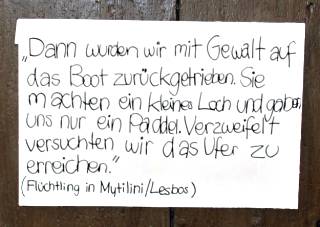 „Dann wurden wir mit Gewalt auf
das Boot zurückgetrieben. Sie
machten ein kleines Loch und gaben
uns nur ein Paddel. Verzweifelt
versuchten wir das Ufer zu
erreichen."
(Flüchtling in Mytilini/Lesbos)